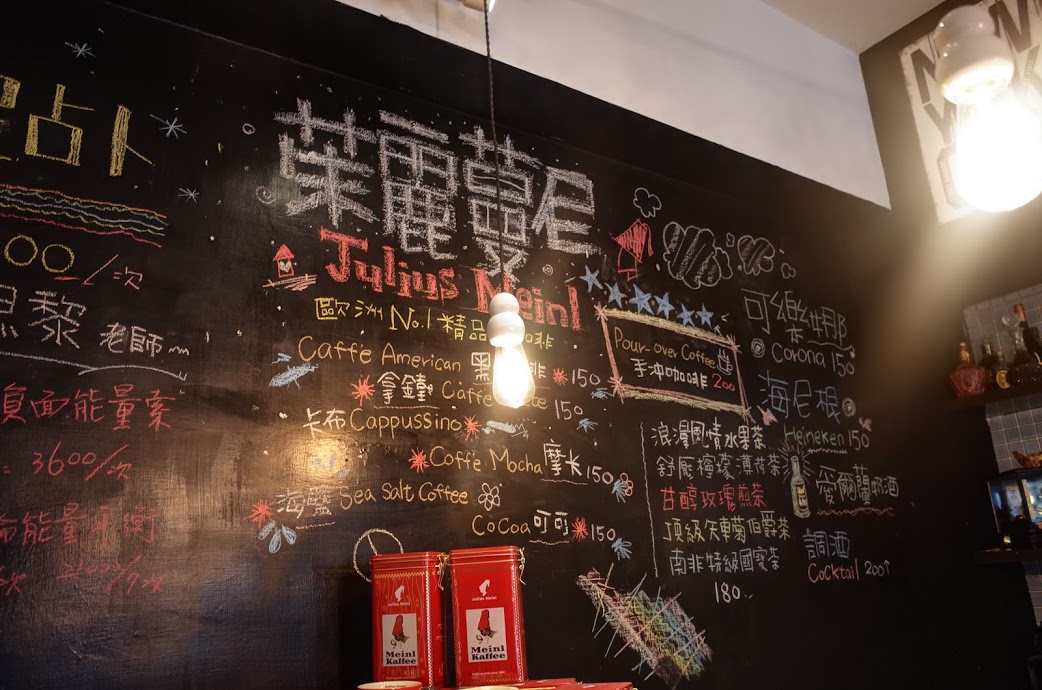 占卜
00 /次
黎 老師
負面能量索
= 3600/次
能量平衡
茱麗蔓尼
Julius Meinl
歐洲No.1精品咖啡
Caffe American 黑咖啡 150
拿鐵 Caffe Latte 150
卡布Cappussino
Coffe Mocha 摩卡 150
海鹽 Sea Salt Coffee
CoCoa 可可 150
Pour-over Coffee
手沖咖啡 200
浪漫風情水果茶
舒壓檸檬薄荷茶
甘醇玫瑰煎茶
頂級矢車菊伯爵茶
南非特級國寶茶
180
可樂娜
Corona 150
海尼根
Heineken 150
愛爾蘭奶酒
調酒
Cocktail 200↑
Julius Meinl
Meinl
Kaffee
Julius Meinl
Meinl
Kaffee